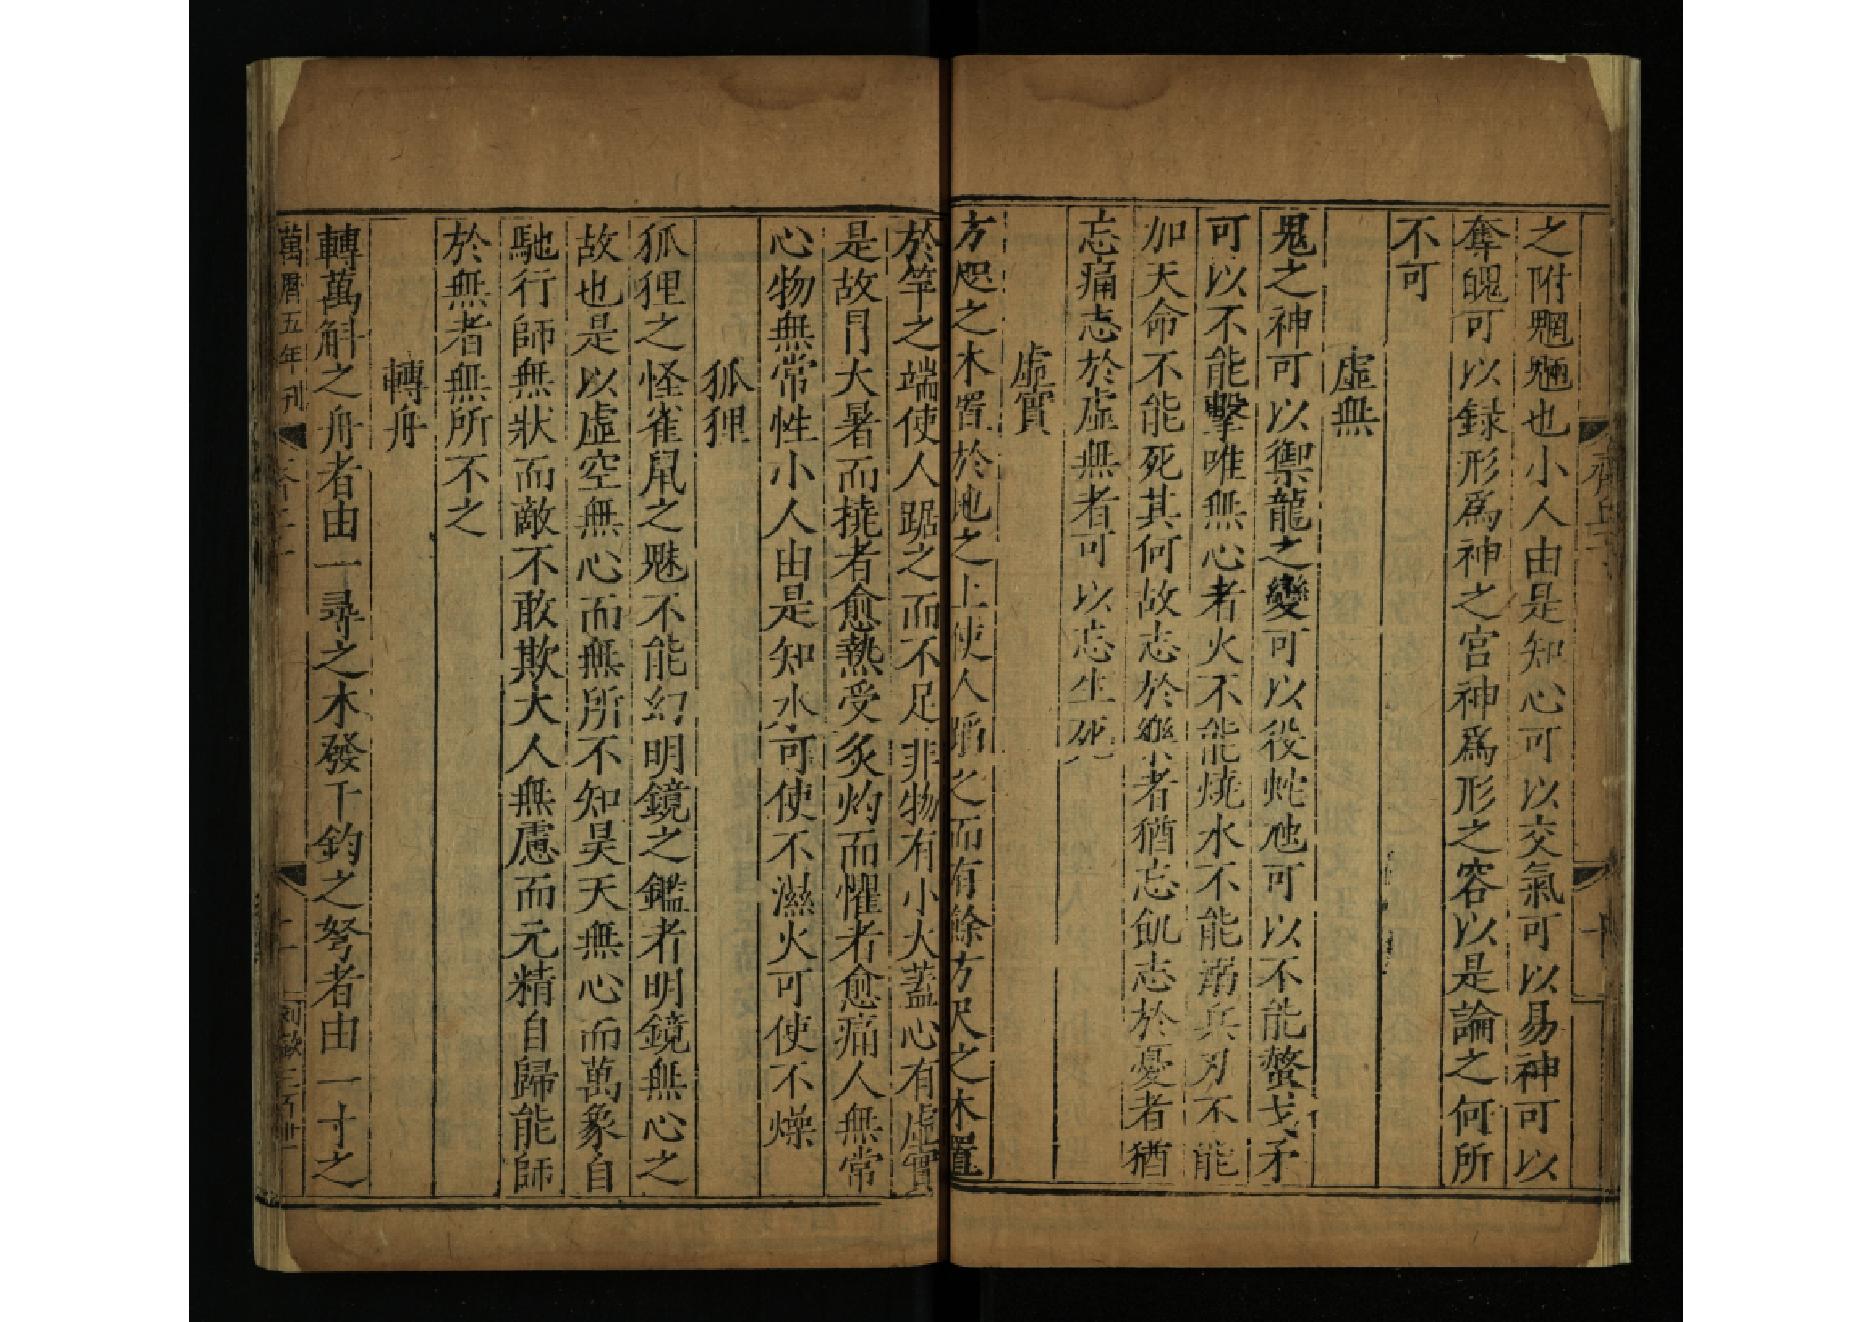 之附魍魎也小人由是知心可以交氣可以易神可以
奪魄可以録形爲神之宮神爲形之容以是論之何所
不可
虛無
鬼之神可以禦龍之變可以役蛇虺可以不能螫戈矛
可以不能擊唯無心者火不能燒水不能溺兵刃不能
加天命不能死其何故志於樂者猶忘飢志於憂者猶
忘痛志於虛無者可以忘生死
虛實
方咫之木置於地之上使人蹈之而有餘方尺之木置
於竿之端使人踞之而不足非物有小大蓋心有虛實
是故冒大暑而撓者愈熱受炙灼而懼者愈痛人無常
心物無常性小人由是知水可使不濕火可使不燥
狐狸
狐狸之怪雀鼠之魅不能幻明鏡之鑑者明鏡無心之
故也是以虛空無心而無所不知昊天無心而萬象自
馳行師無狀而敵不敢欺大人無慮而元精自歸能師
於無者無所不之
轉舟
轉萬斛之舟者由一尋之木發千鈞之弩者由一寸之
萬曆五年刊